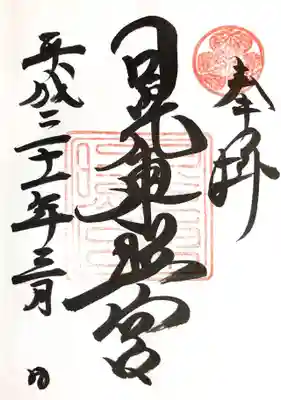 奉拝
日光東照宮
平成二十一年三月 日